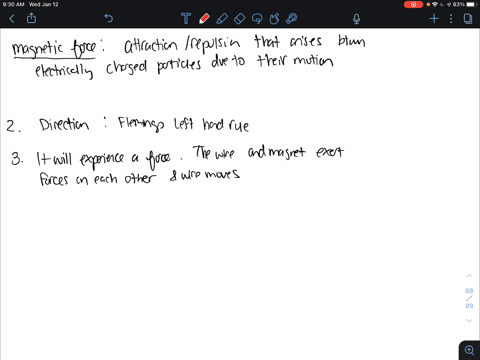 9:30 AM Wed Jan 12
83%
magnetic force: attraction/repulsion that arises btwn
electrically charged particles due to their motion
2. Direction: Flemings left hand rule
3. It will experience a force. The wire and magnet exert
forces on each other & wire moves
88
/
89